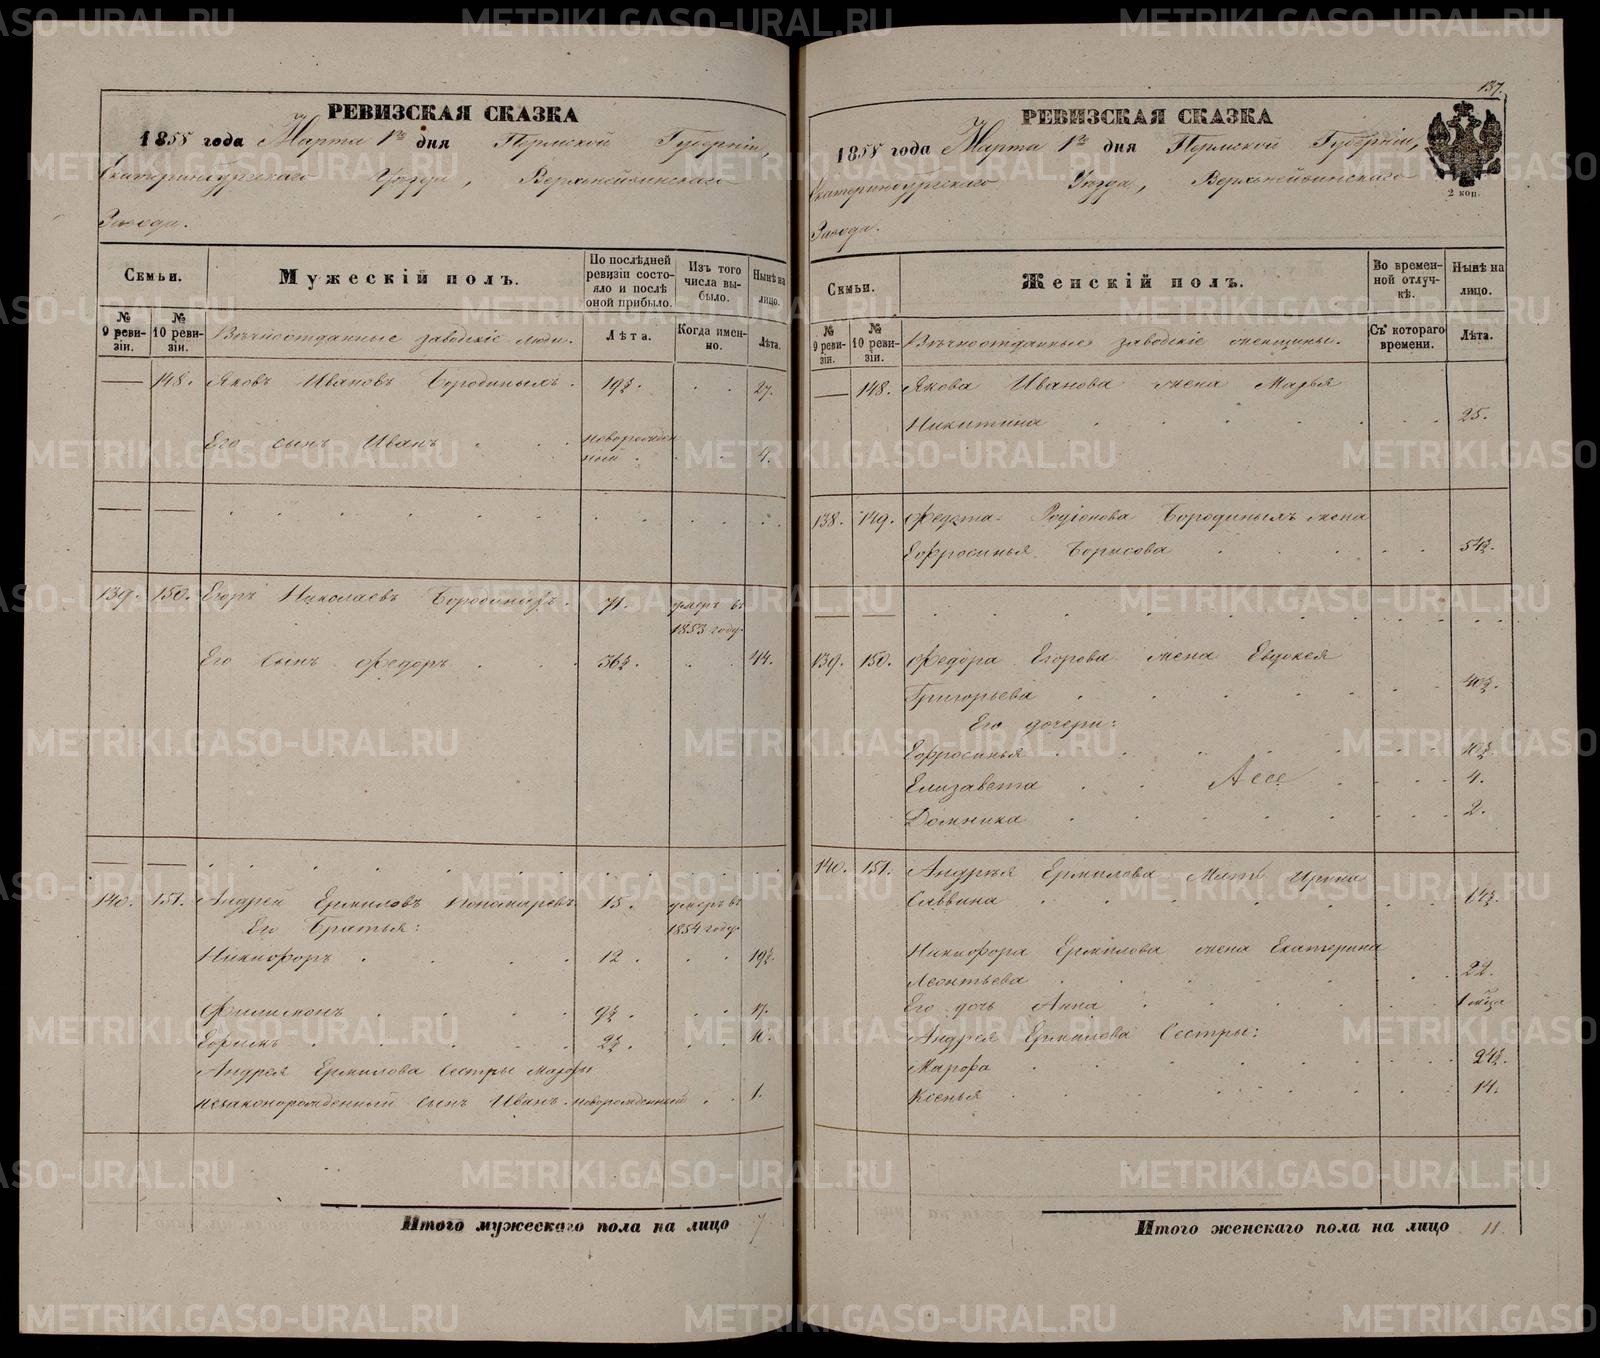 РЕВИЗСКАЯ СКАЗКА
1858 года Марта 1го дня Пермской Губерніи,
Екатеринбургскаго Уѣзда, Верхнейвинскаго
Завода.
Семьи.
Мужескій полъ.
По послѣдней ревизіи состояло и послѣ оной прибыло.
Изъ того числа выбыло.
Нынѣ на лицо.
№ 9 ревизіи.
№ 10 ревизіи.
Вѣчноотданные заводскіе люди.
Лѣта.
Когда именно.
Лѣта.
— 148. Яковъ Ивановъ Бородиныхъ. 19½. 27.
Его сынъ Иванъ новорожденный 4.
— —
139. 150. Егоръ Николаевъ Бородиныхъ. 71. умеръ въ 1853 году.
Его сынъ Федоръ 36½. 44.
— —
140. 151. Андрей Ермиловъ Пономаревъ 15. умеръ въ 1854 году.
Его Братья:
Никифоръ 12. 19½.
Филимонъ 9½. 17.
Ефимъ 2½.
Андрея Ермилова Сестры Марфы
незаконорожденный сынъ Иванъ. новорожденный 1.
Итого мужескаго пола на лицо 7
137.
РЕВИЗСКАЯ СКАЗКА
1858 года Марта 1го дня Пермской Губерніи,
Екатеринбургскаго Уѣзда, Верхнейвинскаго
Завода.
2 коп.
Семьи.
Женскій полъ.
Во временной отлучкѣ.
Нынѣ на лицо.
№ 9 ревизіи.
№ 10 ревизіи.
Вѣчноотданные заводскіе женщины.
Съ котораго времени.
Лѣта.
— 148. Якова Иванова жена Марья
Никитина 25.
138. 149. Федота Родіонова Бородиныхъ жена
Ефросинья Борисова 54½.
— —
139. 150. Федора Егорова жена Евдокея
Григорьева 40½.
Его дочери:
Ефросинья 10½.
Елизавета 4.
Домника 2.
140. 151. Андрея Ермилова Мать Ирина
Саввина 64½.
Никифора Ермилова жена Екатерина
Леонтьева 22.
Его дочь Анна
Андрея Ермилова Сестры:
Марфа 24½.
Ксенья 14.
Итого женскаго пола на лицо 11.
METRIKI.GASO-URAL.RU